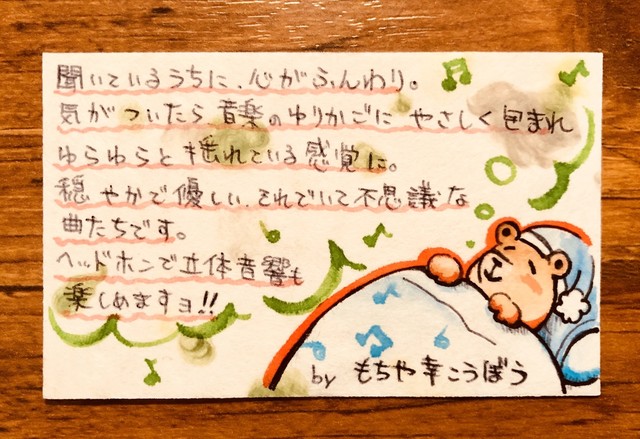 聞いているうちに、心がふんわり。
気がついたら 音楽のゆりかごに やさしく包まれ
ゆらゆらと揺れている感覚に。
穏やかで優しい、それでいて不思議な
曲たちです。
ヘッドホンで立体音響も
楽しめますョ!!
by もちや幸こうぼう